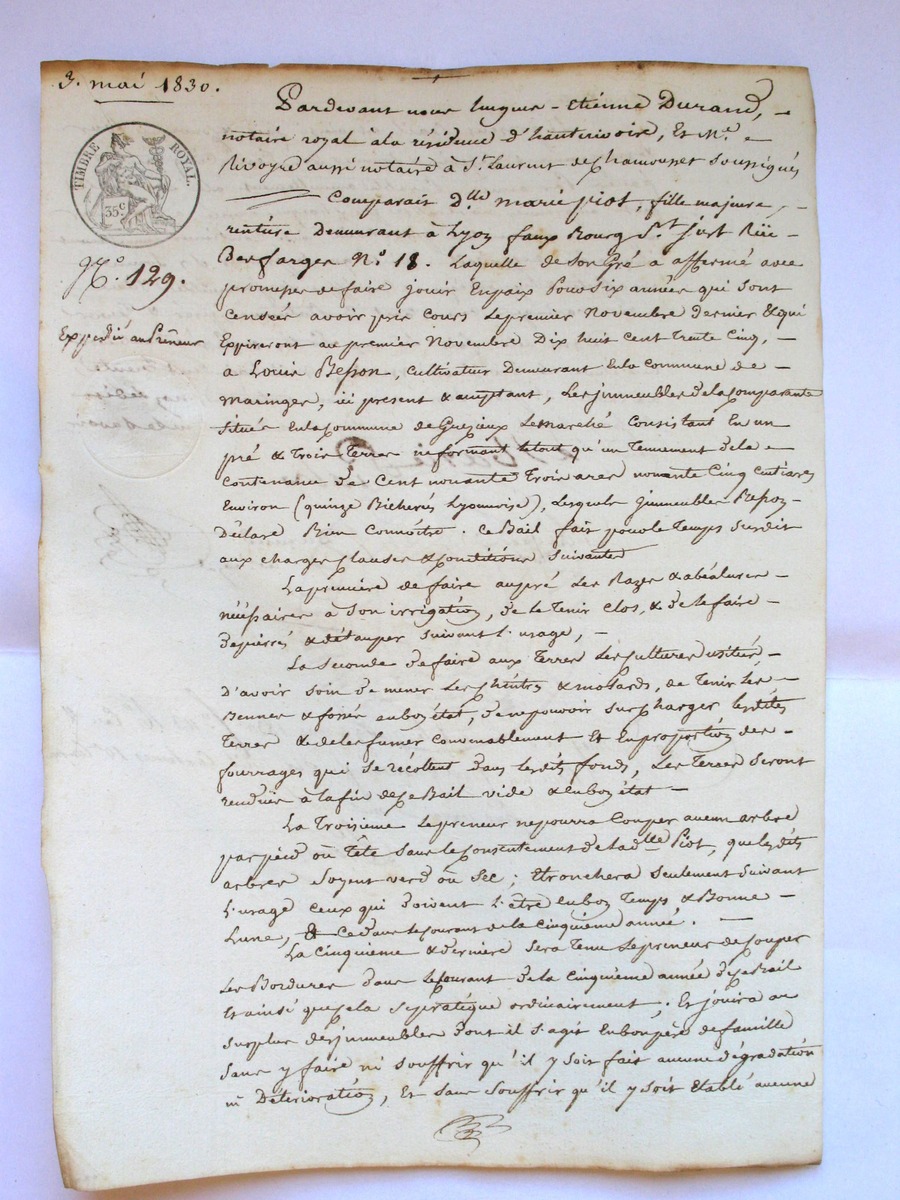 3. mai 1830.
TIMBRE ROYAL.
35c
N.o 129.
Expédié au Preneur
Pardevant nous hugues-Etienne Durand,
notaire royal à la résidence d'hauterivoire, Et Me.
Rivoyre aussi notaire à St. Laurent de Chamousset Soussignés
Comparait Dlle marie piot, fille majeure,
rentière Demeurant à Lyon faux Bourg St. Just Rüe
Des farges No. 18. Laquelle de Son Gré a affermé avec
promesse de faire Jouir En paix Pour Six années qui Sont
Censées avoir pris Cours Le premier Novembre Dernier & qui
Expireront au premier Novembre Dix huit Cent Trente Cinq,
a Louis Besson, Cultivateur Demeurant En la Commune de
Maringes, ici présent & acceptant, Les jmmeubles de la Comparante
Situés En la Commune de Grezieux Le marché Consistant En un
pré & Trois Terres ne formant Le tout qu'un Tennement de la
Contenance de Cent nonante Trois ares nonante Cinq Centiares
Environ (quinze Bicherées Lyonnoises), Lesquels jmmeubles Besson
Déclare Bien Connoître. Ce Bail fait pour le Temps Susdit
aux Charges Clauses & Conditions Suivantes
La première de faire au pré Les Razes & abéalures
nécessaires à Son irrigation, de le Tenir Clos, & de le faire
Dépierrés & détauper Suivant L'usage,
La Seconde de faire aux Terres Les Cultures usitées
d'avoir Soin de mener Les Cheintres & molards, de Tenir Les
Bennes & fossés en bon état, de ne pouvoir Surcharger Lesdites
Terres & de les fumer Convenablement Et En proportion des
fourrages qui Se récoltent Dans Lesdits fonds, Les Terres Seront
rendues à la fin de ce Bail vide & en bon état
La Troisième Le preneur ne pourra Couper aucun arbre
par pied ou Tête Sans le Consentement de Ladlle Piot, que lesdits
arbres Soyent verd ou Sec; Etronchera Seulement Suivant
L'usage Ceux qui doivent L'être en bon Temps & Bonne
Lune, & Ce dans le Courant de la Cinquième année.
La Cinquième & dernière Sera Tenu Le preneur de Couper
Les Bordures dans Le Courant de la Cinquième année de Ce Bail
Et ainsi que Cela Se pratique ordinairement, Et jouira au
Surplus des jmmeubles dont il S'agit En bon père de famille
Sans y faire ni Souffrir qu'il y Soit fait aucune dégradation
ni Déterioration, Et Sans Souffrir qu'il y Soit Etabli aucune